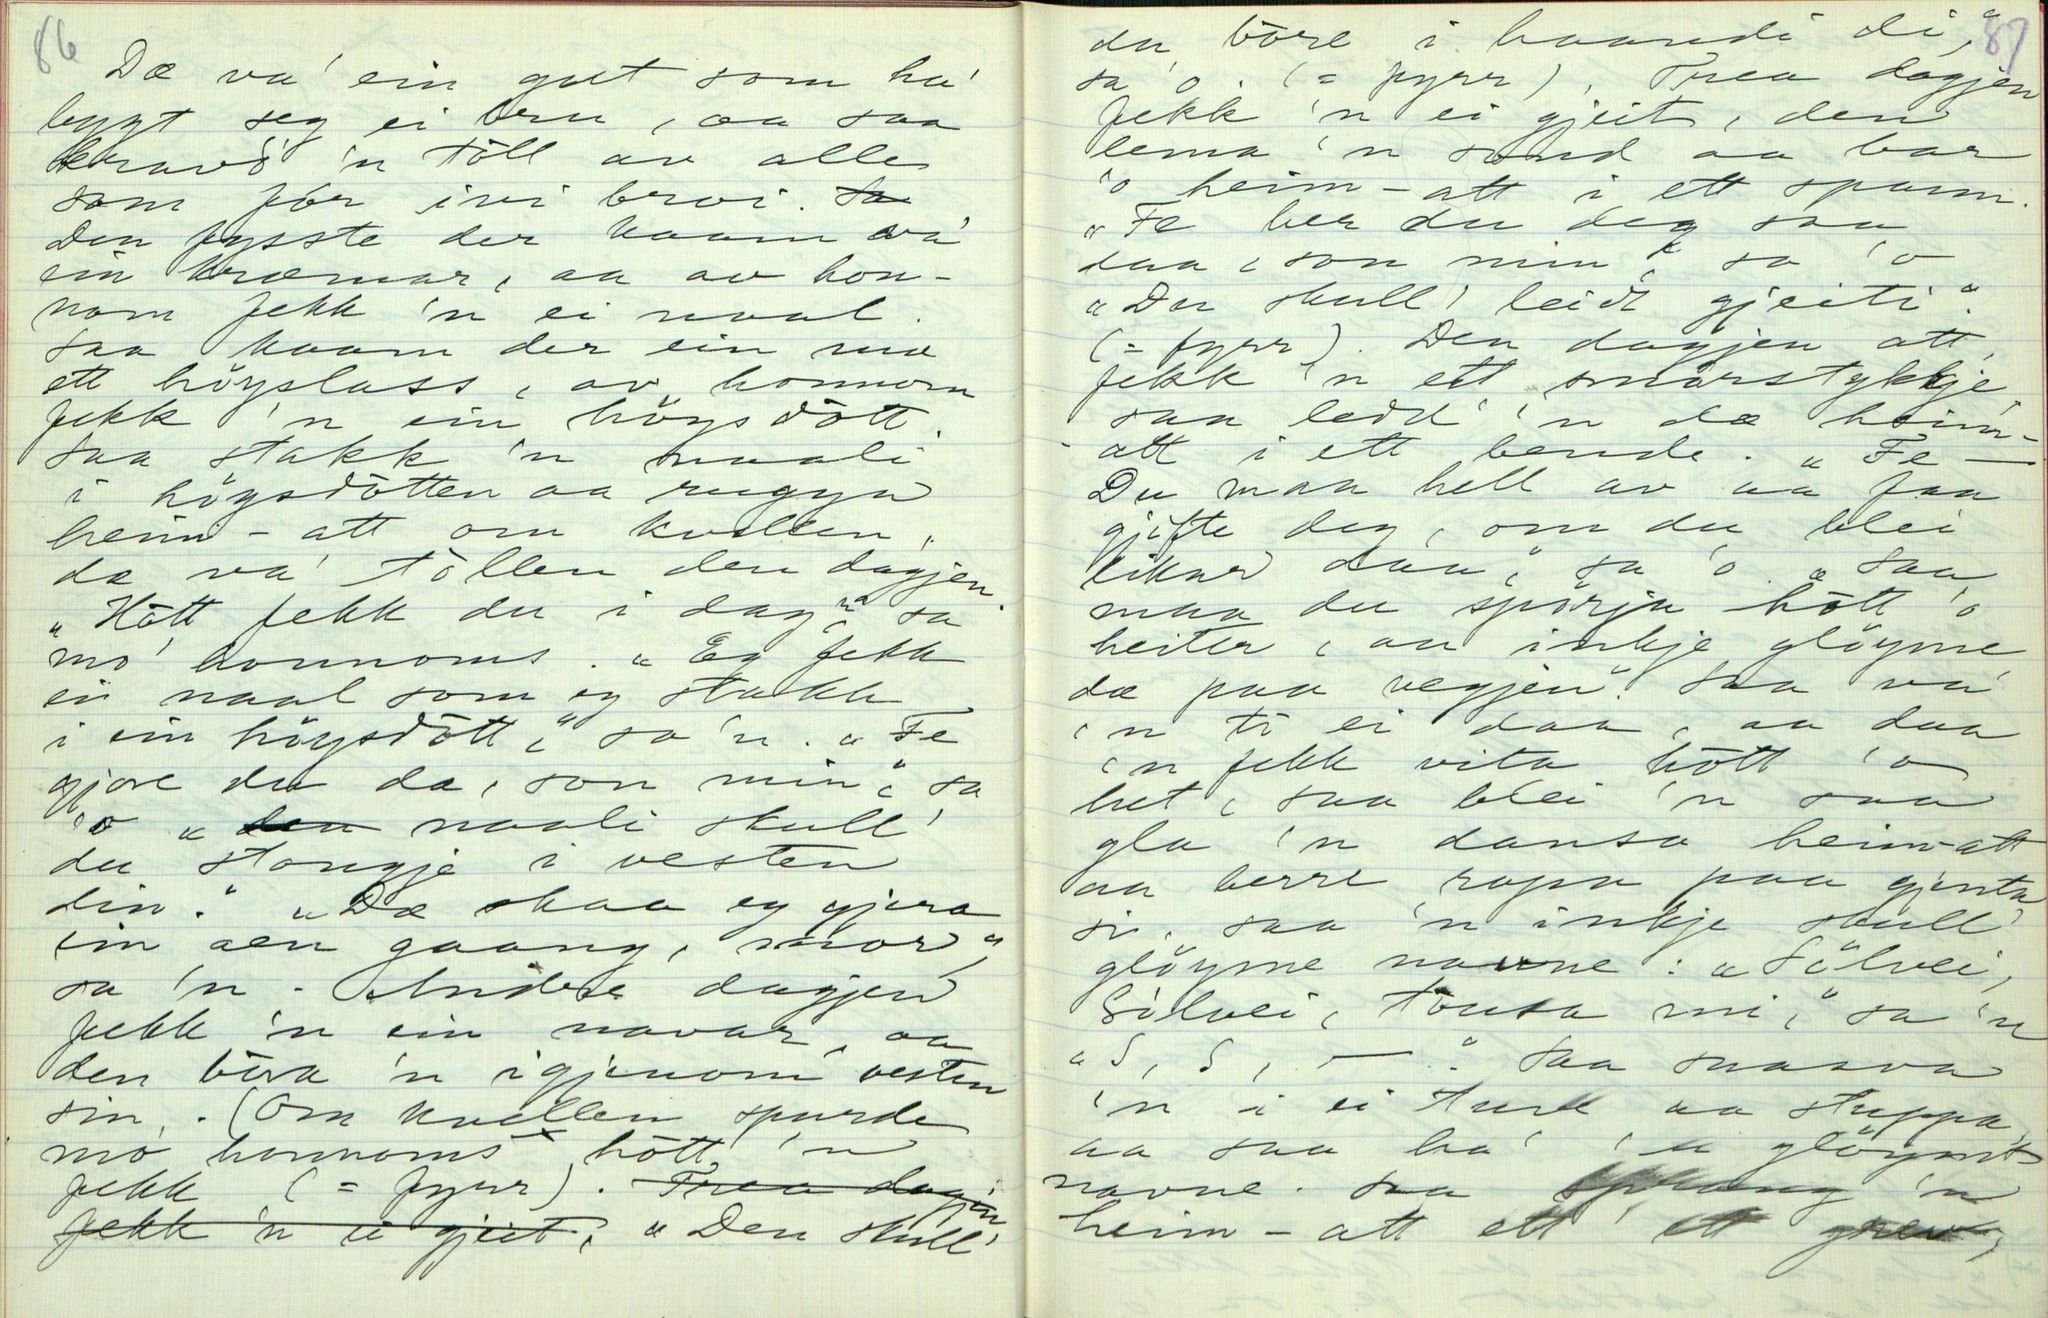 86
Dæ va' ein gut som ha'
bygt seg ei bru, aa saa
kravd' 'n töll av alle
som fór ivi brui. Sa
Den fysste der kaam va'
ein kræmar, aa av hon-
nom fekk 'n ei naal.
Saa kaam der ein mæ
ett höyslass, av honnom
fekk 'n ein höysdött.
Saa stakk 'n naali
i höysdötten aa
heim-att om kvellen,
dæ va' töllen den dagjen.
"Hött fekk du i dag," sa
mo' honnoms. "Eg fekk
ei naal som eg stakk
i ein höysdött," sa 'n. "Fe
gjore du dæ, son min," sa
'o "den naali skull'
du stongje i vesten
din." "Dæ skaa eg gjera
ein aen gaang, mor,"
sa 'n. Andre dagjen
fekk 'n ein navar, aa
den böra 'n igjenom vesten
sin. (Om kvellen spurde
mo' honnoms hött 'n
fekk (= fyrr). Trea dagjen
fekk 'n ei gjeit, "Den skull'
87
du böre i haandi di,"
sa 'o. (= fyrr). Trea dagjen
fekk 'n ei gjeit, den
lema 'n sund aa bar
'o heim-att i ett spann.
"Fe ber du deg saa
daa, son min," sa 'o
"Du skull' leidt gjeiti".
(= fyrr). Den dagjen att,
fekk 'n ett smörstykkje,
saa leidd' 'n dæ heim-
att i ett bende. "Fe —
Du maa hell av aa faa
gjifte deg, om du blei
likar daa," sa 'o. "Saa
maa du spörja hött 'o
heiter, aa inkje glöyme
dæ paa vegjen". Saa va'
'n ti ei daa, aa daa
'n fekk vita hött 'o
het, saa blei 'n saa
gla 'n dansa heim-att
aa berre ropa paa gjenta
si, saa 'n inkje skull'
glöyme navne: "Sölvei,
Sölvei, tousa mi," sa 'n
"S, S, —." Saa snaava
'n i ei tuve aa stuppa,
aa saa ha' 'n glöymt
navne. Saa sprang 'n
heim-att ett ett grev,